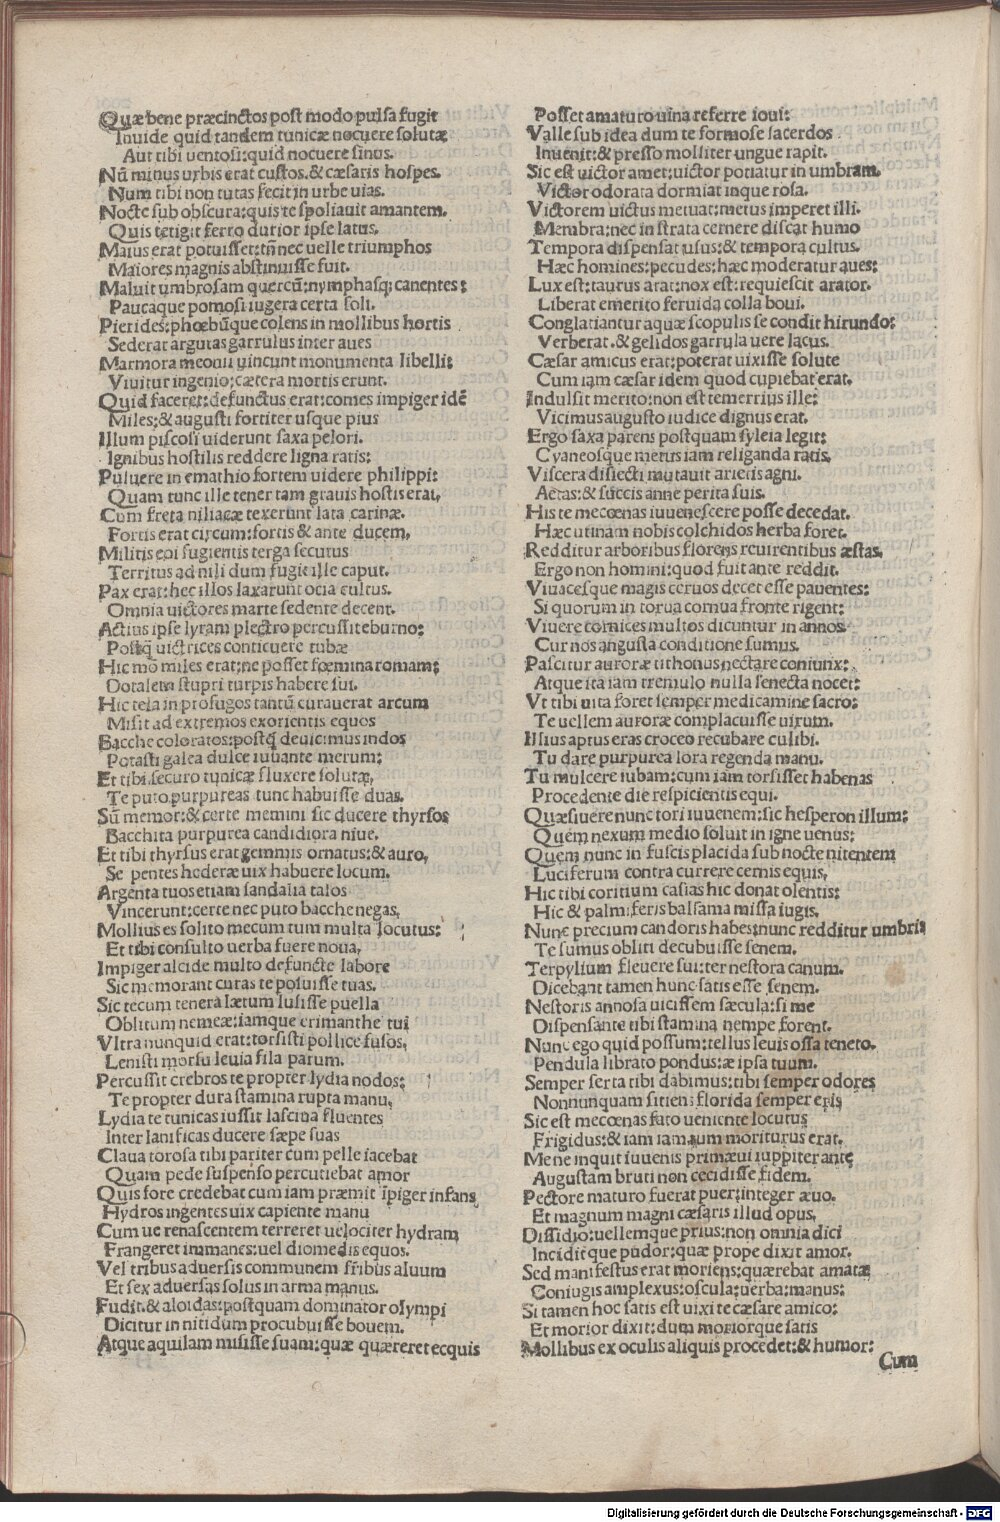 Quæ bene præcinctos post modo pulsa fugit
Inuide quid tandem tunicæ nocuere solutæ
Aut tibi uentosi:quid nocuere sinus.
Nū minus urbis erat custos.& cæsaris hospes.
Num tibi non tutas fecit in urbe uias.
Nocte sub obscura:quis te spoliauit amantem.
Quis tetigit ferro durior ipse latus.
Maius erat potuisset:tn̄ nec uelle triumphos
Maiores magnis abstinuisse fuit.
Maluit umbrosam quercū:nymphasq; canentes:
Paucaque pomosi iugera certa soli.
Pierides:phœbūque colens in mollibus hortis
Sederat argutas garrulus inter aues
Marmora meonii uincunt monumenta libelli:
Viuitur ingenio:cætera mortis erunt.
Quid faceret:defunctus erat:comes impiger idē
Miles:& augusti fortiter usque pius
Illum piscosi uiderunt saxa pelori.
Ignibus hostilis reddere ligna ratis:
Puluere in emathio fortem uidere philippi:
Quam tunc ille tener tam grauis hostis erat,
Cum freta niliacæ texerunt lata carinæ.
Fortis erat circum:fortis & ante ducem,
Militis eoi fugientis terga secutus
Territus ad nili dum fugit ille caput.
Pax erat:hec illos laxarunt ocia cultus.
Omnia uictores marte sedente decent.
Actius ipse lyram plectro percussit eburno:
Postq̄ uictrices conticuere tubæ
Hic mō miles erat:ne posset fœmina romam:
Dotalem stupri turpis habere sui.
Hic tela in profugos tantū curauerat arcum
Misit ad extremos exorientis equos
Bacche coloratos:postq̄ deuicimus indos
Potasti galea dulce iuuante merum:
Et tibi securo tunicæ fluxere solutæ,
Te puto purpureas tunc habuisse duas.
Sū memor:& certe memini sic ducere thyrsos
Bacchita purpurea candidiora niue.
Et tibi thyrsus erat gemmis ornatus:& auro,
Se pentes hederæ uix habuere locum.
Argenta tuos etiam sandalia talos
Vincerunt:certe nec puto bacche negas,
Mollius es solito mecum tum multa locutus:
Et tibi consulto uerba fuere noua,
Impiger alcide multo defuncte labore
Sic memorant curas te posuisse tuas.
Sic tecum tenera lætum lusisse puella
Oblitum nemeæ:iamque erimanthe tui
Vltra nunquid erat:torsisti pollice fusos,
Lenisti morsu leuia fila parum.
Percussit crebros te propter lydia nodos:
Te propter dura stamina rupta manu,
Lydia te tunicas iussit lasciua fluentes
Inter lanificas ducere sæpe suas
Claua torosa tibi pariter cum pelle iacebat
Quam pede suspenso percutiebat amor
Quis fore credebat cum iam præmit īpiger infans
Hydros ingentes uix capiente manu
Cum ue renascentem terreret uelociter hydram
Frangeret immanes:uel diomedis equos.
Vel tribus aduersis communem fr̄ibus aluum
Et sex aduersas solus in arma manus.
Fudit.& aloidas:postquam dominator olympi
Dicitur in nitidum procubuisse bouem.
Atque aquilam misisse suam:quæ quæreret ecquis
Posset amaturo uina referre ioui:
Valle sub idea dum te formose sacerdos
Inuenit:& presso molliter ungue rapit.
Sic est uictor amet:uictor potiatur in umbram.
Victor odorata dormiat inque rosa.
Victorem uictus metuat:metus imperet illi.
Membra:nec in strata cernere discat humo
Tempora dispensat usus:& tempora cultus.
Hæc homines:pecudes:hæc moderatur aues:
Lux est:taurus arat:nox est:requiescit arator.
Liberat emerito feruida colla boui.
Conglatiantur aquæ scopulis se condit hirundo:
Verberat.& gelidos garrula uere lacus.
Cæsar amicus erat:poterat uixisse solute
Cum iam cæsar idem quod cupiebat erat.
Indulsit merito:non est temerrius ille:
Vicimus augusto iudice dignus erat.
Ergo saxa parens postquam syleia legit:
Cyaneosque metus iam religanda ratis,
Viscera disiecti mutauit arietis agni.
Aetas:& succis anne perita suis.
His te mecœnas iuuenescere posse decedat.
Hæc utinam nobis colchidos herba foret.
Redditur arboribus florens reuirentibus æstas.
Ergo non homini:quod fuit ante reddit.
Viuacesque magis ceruos decet esse pauentes:
Si quorum in torua cornua fronte rigent:
Viuere cornices multos dicuntur in annos
Cur nos angusta conditione sumus.
Pascitur auroræ tithonus nectare coniunx:
Atque ita iam tremulo nulla senecta nocet:
Vt tibi uita foret semper medicamine sacro:
Te uellem auroræ complacuisse uirum.
Illius aptus eras croceo recubare culibi.
Tu dare purpurea lora regenda manu.
Tu mulcere iubam:cum iam torsisset habenas
Procedente die respicientis equi.
Quæsiuere nunc tori iuuenem:sic hesperon illum:
Quem nexum medio soluit in igne uenus:
Quem nunc in fuscis placida sub nocte nitentem
Luciferum contra currere cernis equis,
Hic tibi coritium casias hic donat olentis:
Hic & palmiferis balsama missa iugis,
Nunc precium candoris habes:nunc redditur umbris
Te sumus obliti decubuisse senem.
Terpylium fleuere sui:ter nestora canum.
Dicebant tamen hunc satis esse senem.
Nestoris annosa uicissem sæcula:si me
Dispensante tibi stamina nempe forent.
Nunc ego quid possum:tellus leuis ossa teneto.
Pendula librato pondus:æ ipsa tuum.
Semper serta tibi dabimus:tibi semper odores
Nonnunquam sitiens florida semper eris
Sic est mecœnas fato ueniente locutus
Frigidus:& iam iam cum moriturus erat.
Mene inquit iuuenis primæui iuppiter ante
Augustam bruti non cecidisse fidem.
Pectore maturo fuerat puer:integer æuo.
Et magnum magni cæsaris illud opus,
Dissidio:uellemque prius:non omnia dici
Incidit que pudor:quæ prope dixit amor.
Sed manifestus erat moriens:quærebat amatæ
Coniugis amplexus:oscula:uerba:manus:
Si tamen hoc satis est uixi te cæsare amico:
Et morior dixit:dum moriorque satis
Mollibus ex oculis aliquis procedet:& humor:
Cum
Digitalisierung gefördert durch die Deutsche Forschungsgemeinschaft - DFG